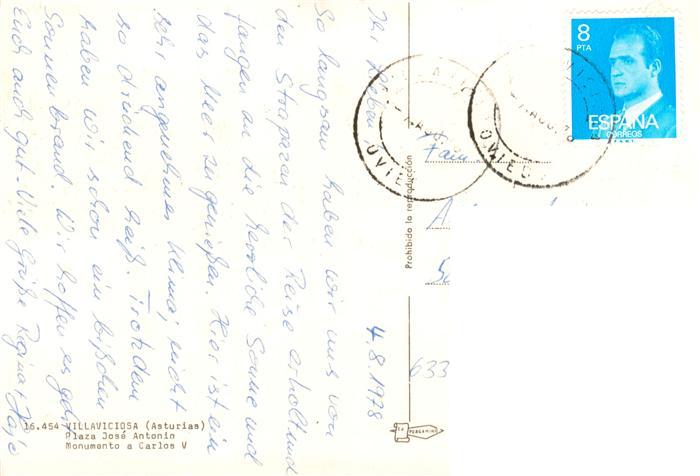 4.8.1978
Ihr Lieben
So langsam haben wir uns von
den Strapazen der Reise erholt und
fangen an die herrliche Sonne und
das Meer zu genießen. Hier ist ein
sehr angenehmes Klima, nicht
so drückend heiß. Trotzdem
haben wir schon ein bißchen
Sonnenbrand. Wir hoffen es geht
Euch auch gut. Viele Grüße Regina +
16.454 VILLAVICIOSA (Asturias)
Plaza José Antonio
Monumento a Carlos V
Prohibida la reproducción
8
PTA
ESPAÑA
CORREOS
OVIEDO
Fam
633